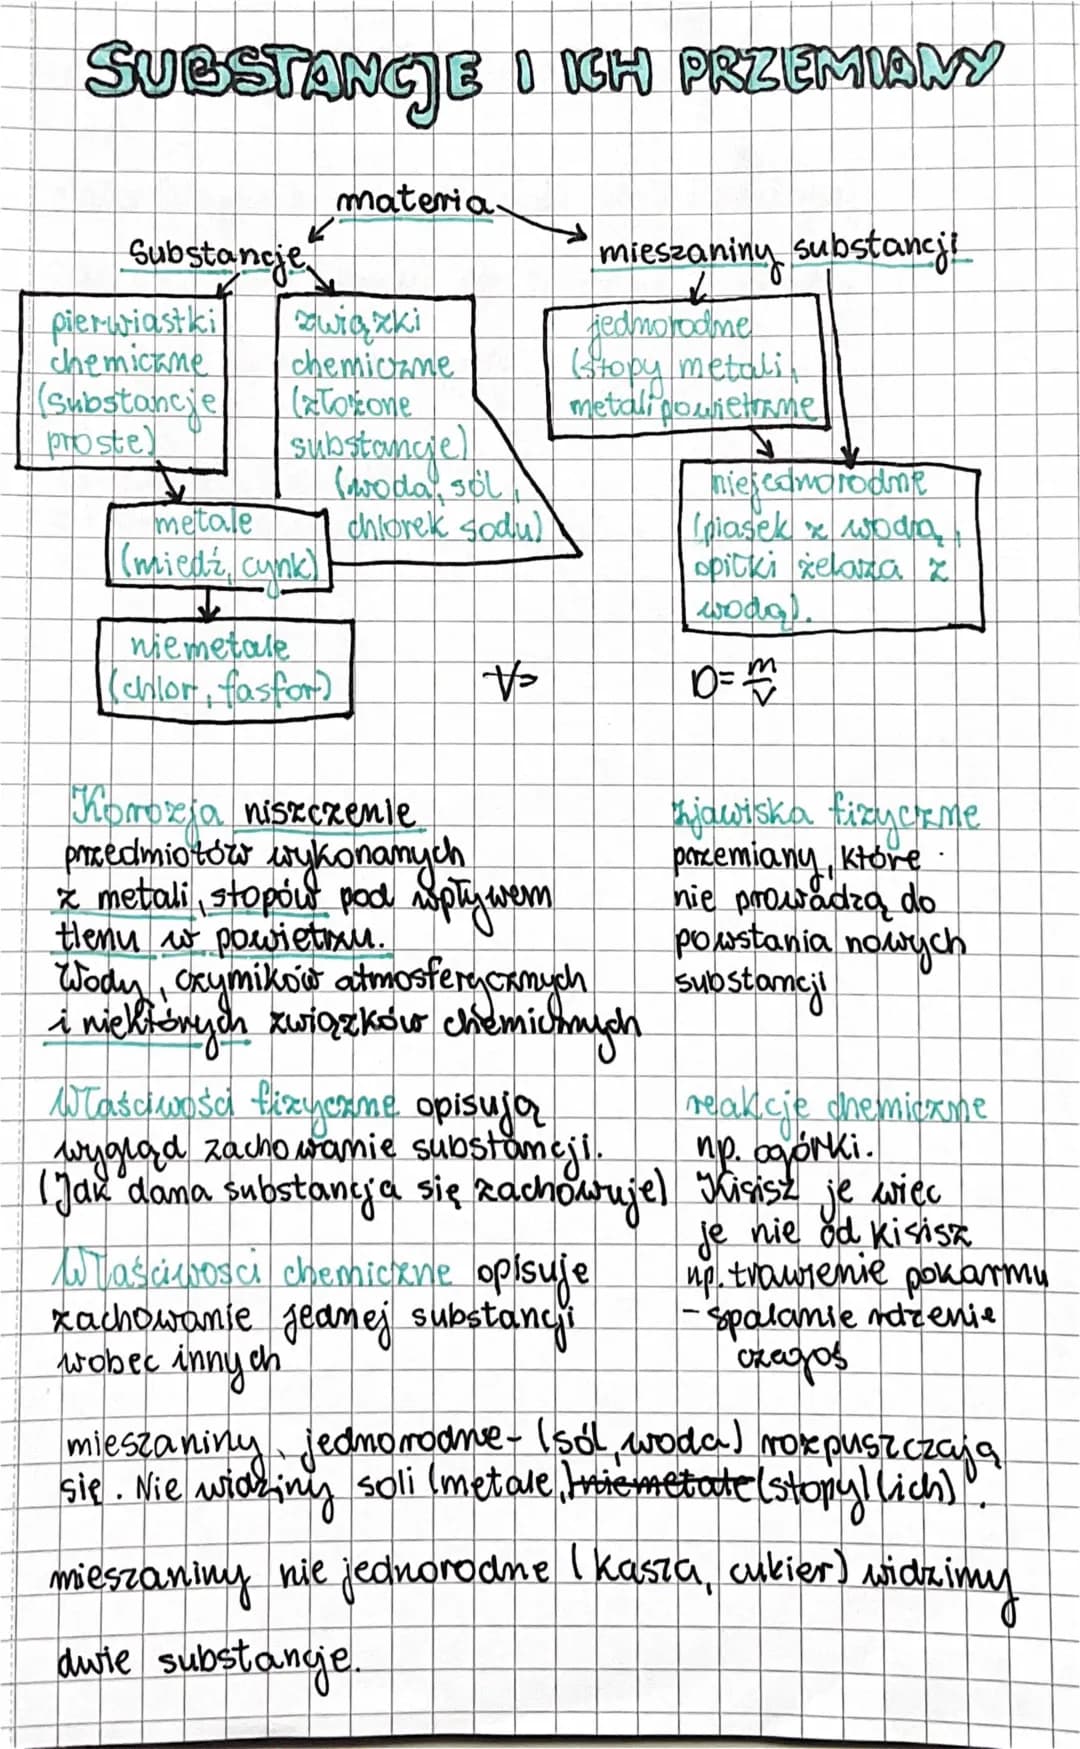 SUBSTANCJE I ICH PRZEMIANY
materia
Substancje
mieszaniny substancji
pierwiastki
chemiczne
(substancje
proste)
związki
chemiczne
(złożone
substancje)
(woda, sól,
chlorek sodu)
jednorodne
(stopy metali,
metali powietrzne
metale
(miedź, cynk)
niejednorodne
(piasek z wodą,
opiłki żelaza z
wodą).
niemetale
(chlor, fasfor)
V=
D= m/V
Korozja niszczenie
przedmiotów wykonanych
z metali, stopów pod wpływem
tlenu w powietrzu.
Wody, czynników atmosferycznych
i niektórych związków chemicznych
zjawiska fizyczne
przemiany, które
nie prowadzą do
powstania nowych
substancji
Właściwości fizyczne opisują
wygląd zachowanie substancji.
(Jak dana substancja się zachowuje)
reakcje chemiczne
np. ogórki.
Kisisz je więc
je nie od kisisz
np. trawienie pokarmu
- spalanie rdzenie
czegoś
Właściwości chemiczne opisuje
zachowanie jednej substancji
wobec innych
mieszaniny jednorodne - (sól, woda) rozpuszczają
się. Nie widziny soli (metale, niemetale (stopy) (ich).
mieszaniny nie jednorodne (kasza, cukier) widzimy
dwie substancje.